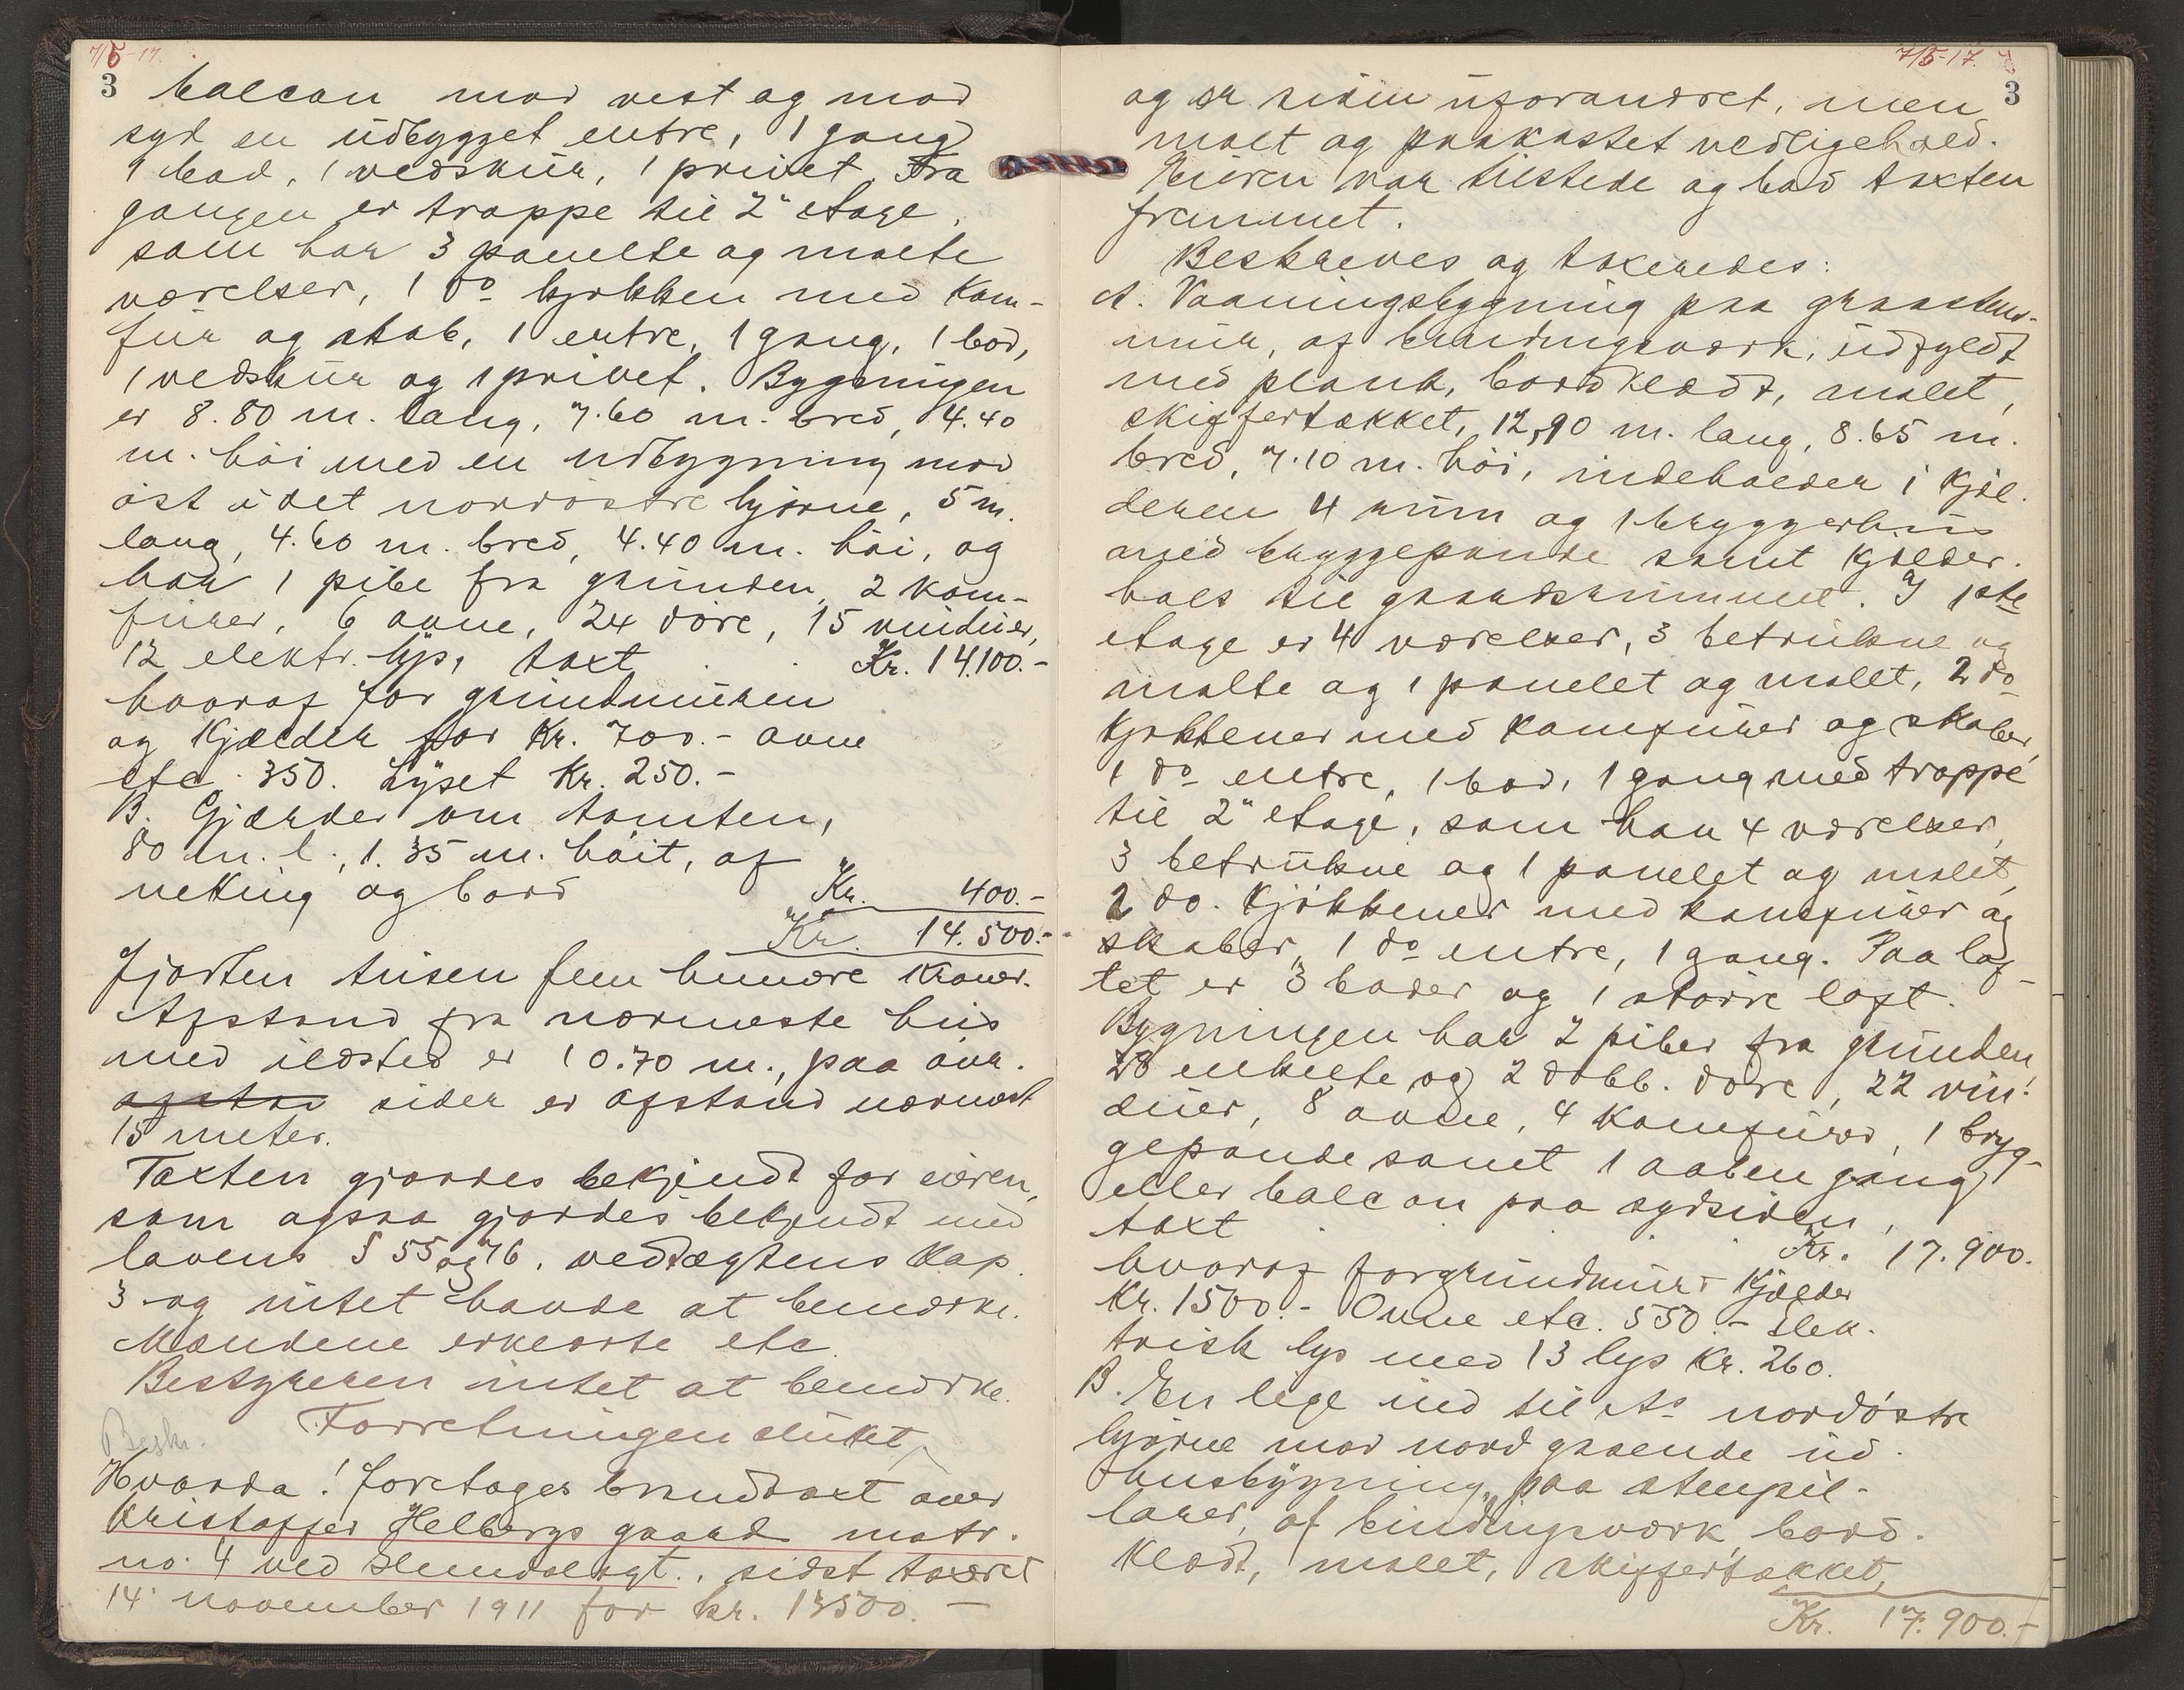 7/5-17.
3 balcon mod vest og mod
syd en udbygget entre, 1 gang
1 bod, 1 vedskur, 1 privet. Fra
gangen er trappe til 2" etage,
som har 3 panelte og malte
værelser, 1 do kjøkken med kom-
fur og skab, 1 entre, 1 gang, 1 bod,
1 vedskur og 1 privet. Bygningen
er 8.80 m. lang, 7.60 m. bred, 4.40
m. höi med en udbygning mod
öst i det nordöstre hjörne, 5 m.
lang, 4.60 m. bred, 4.40 m. höi, og
har 1 pibe fra grunden, 2 kom-
furer, 6 ovne, 24 döre, 15 vinduer,
12 elektr. lys, taxt . . Kr. 14.100.-
hvoraf for grundmuren
og Kjælder for Kr. 700.- ovne
etc. 350. Lyset Kr. 250.-
B. Gjærder om tomten,
80 m. l., 1.35 m. höit, af
neking og bord Kr. 400.-
Kr. 14.500.-
Fjorten tusen fem hundre Kroner.
Afstand fra nærmeste hus
med ildsted er 10.70 m., paa övr.
afstan sider er afstand nærmest
15 meter.
Taxten gjordes bekjendt for eieren,
som ogsaa gjordes bekjendt med
lovens § 55 og 76, vedtægtens Kap.
3 og intet havde at bemærke.
Mændene erklærte etc.
Bestyreren intet at bemærke.
Forretningen sluttet
Beskr.
Hvorda! foretages brandtaxt over
Kristoffer Helbergs gaard matr.
no. 4 ved Hundalsgt., sidst taxeret
14 november 1911 for kr. 13500.-
7/5-17.
og er siden uforandret, men 3
malt og paakostet vedligehold.
Eieren var tilstede og bad taxten
fremmet.
Beskreves og taxeredes:
A. Vaaningsbygning paa graastens-
mur, af bindingsværk, udfyldt
med plank, bordklædt, malet,
skiffertækket, 12,90 m. lang, 8.65 m.
bred, 7.10 m. höi, indeholder i Kjæl-
deren 4 rum og 1 bryggerhus
med bryggepande samt Kjælder-
hals til gaardsrummet. I 1ste
etage er 4 værelser, 3 betrukne og
malte og 1 panelet og malet, 2 do
Kjøkkener med Komfurer og skaber,
1 do entre, 1 bod, 1 gang med trappe
til 2" etage, som har 4 værelser,
3 betrukne og 1 panelet og malet,
2 do. Kjøkkener med komfurer og
skaber, 1 do entre, 1 gang. Paa lof-
tet er 3 boder og 1 större loft.
Bygningen har 2 piber fra grunden,
28 enkelte og 2 dobb. döre, 22 vin-
duer, 8 ovne, 4 Komfurer, 1 bryg-
gepande samt 1 aaben gang
eller balcon paa sydsiden,
taxt . . . Kr. 17.900.
hvoraf for grundmur Kjælder
Kr. 1500.- Ovne etc. 550.- Elek-
trisk lys med 13 lys Kr. 260.
B. En lige ind til As nordöstre
hjörne mod nord gaaende ud-
husbygning, paa stenpil-
larer, af bindingsværk, bord-
klædt, malet, skiffertækket,
Kr. 17.900.-